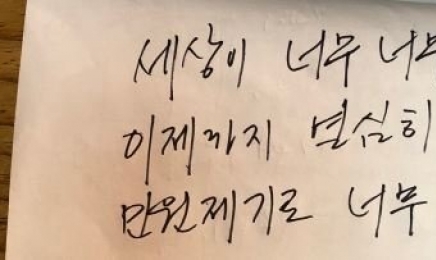 세상이 너무 너무
이제까지 열심히
만원제기로 너무